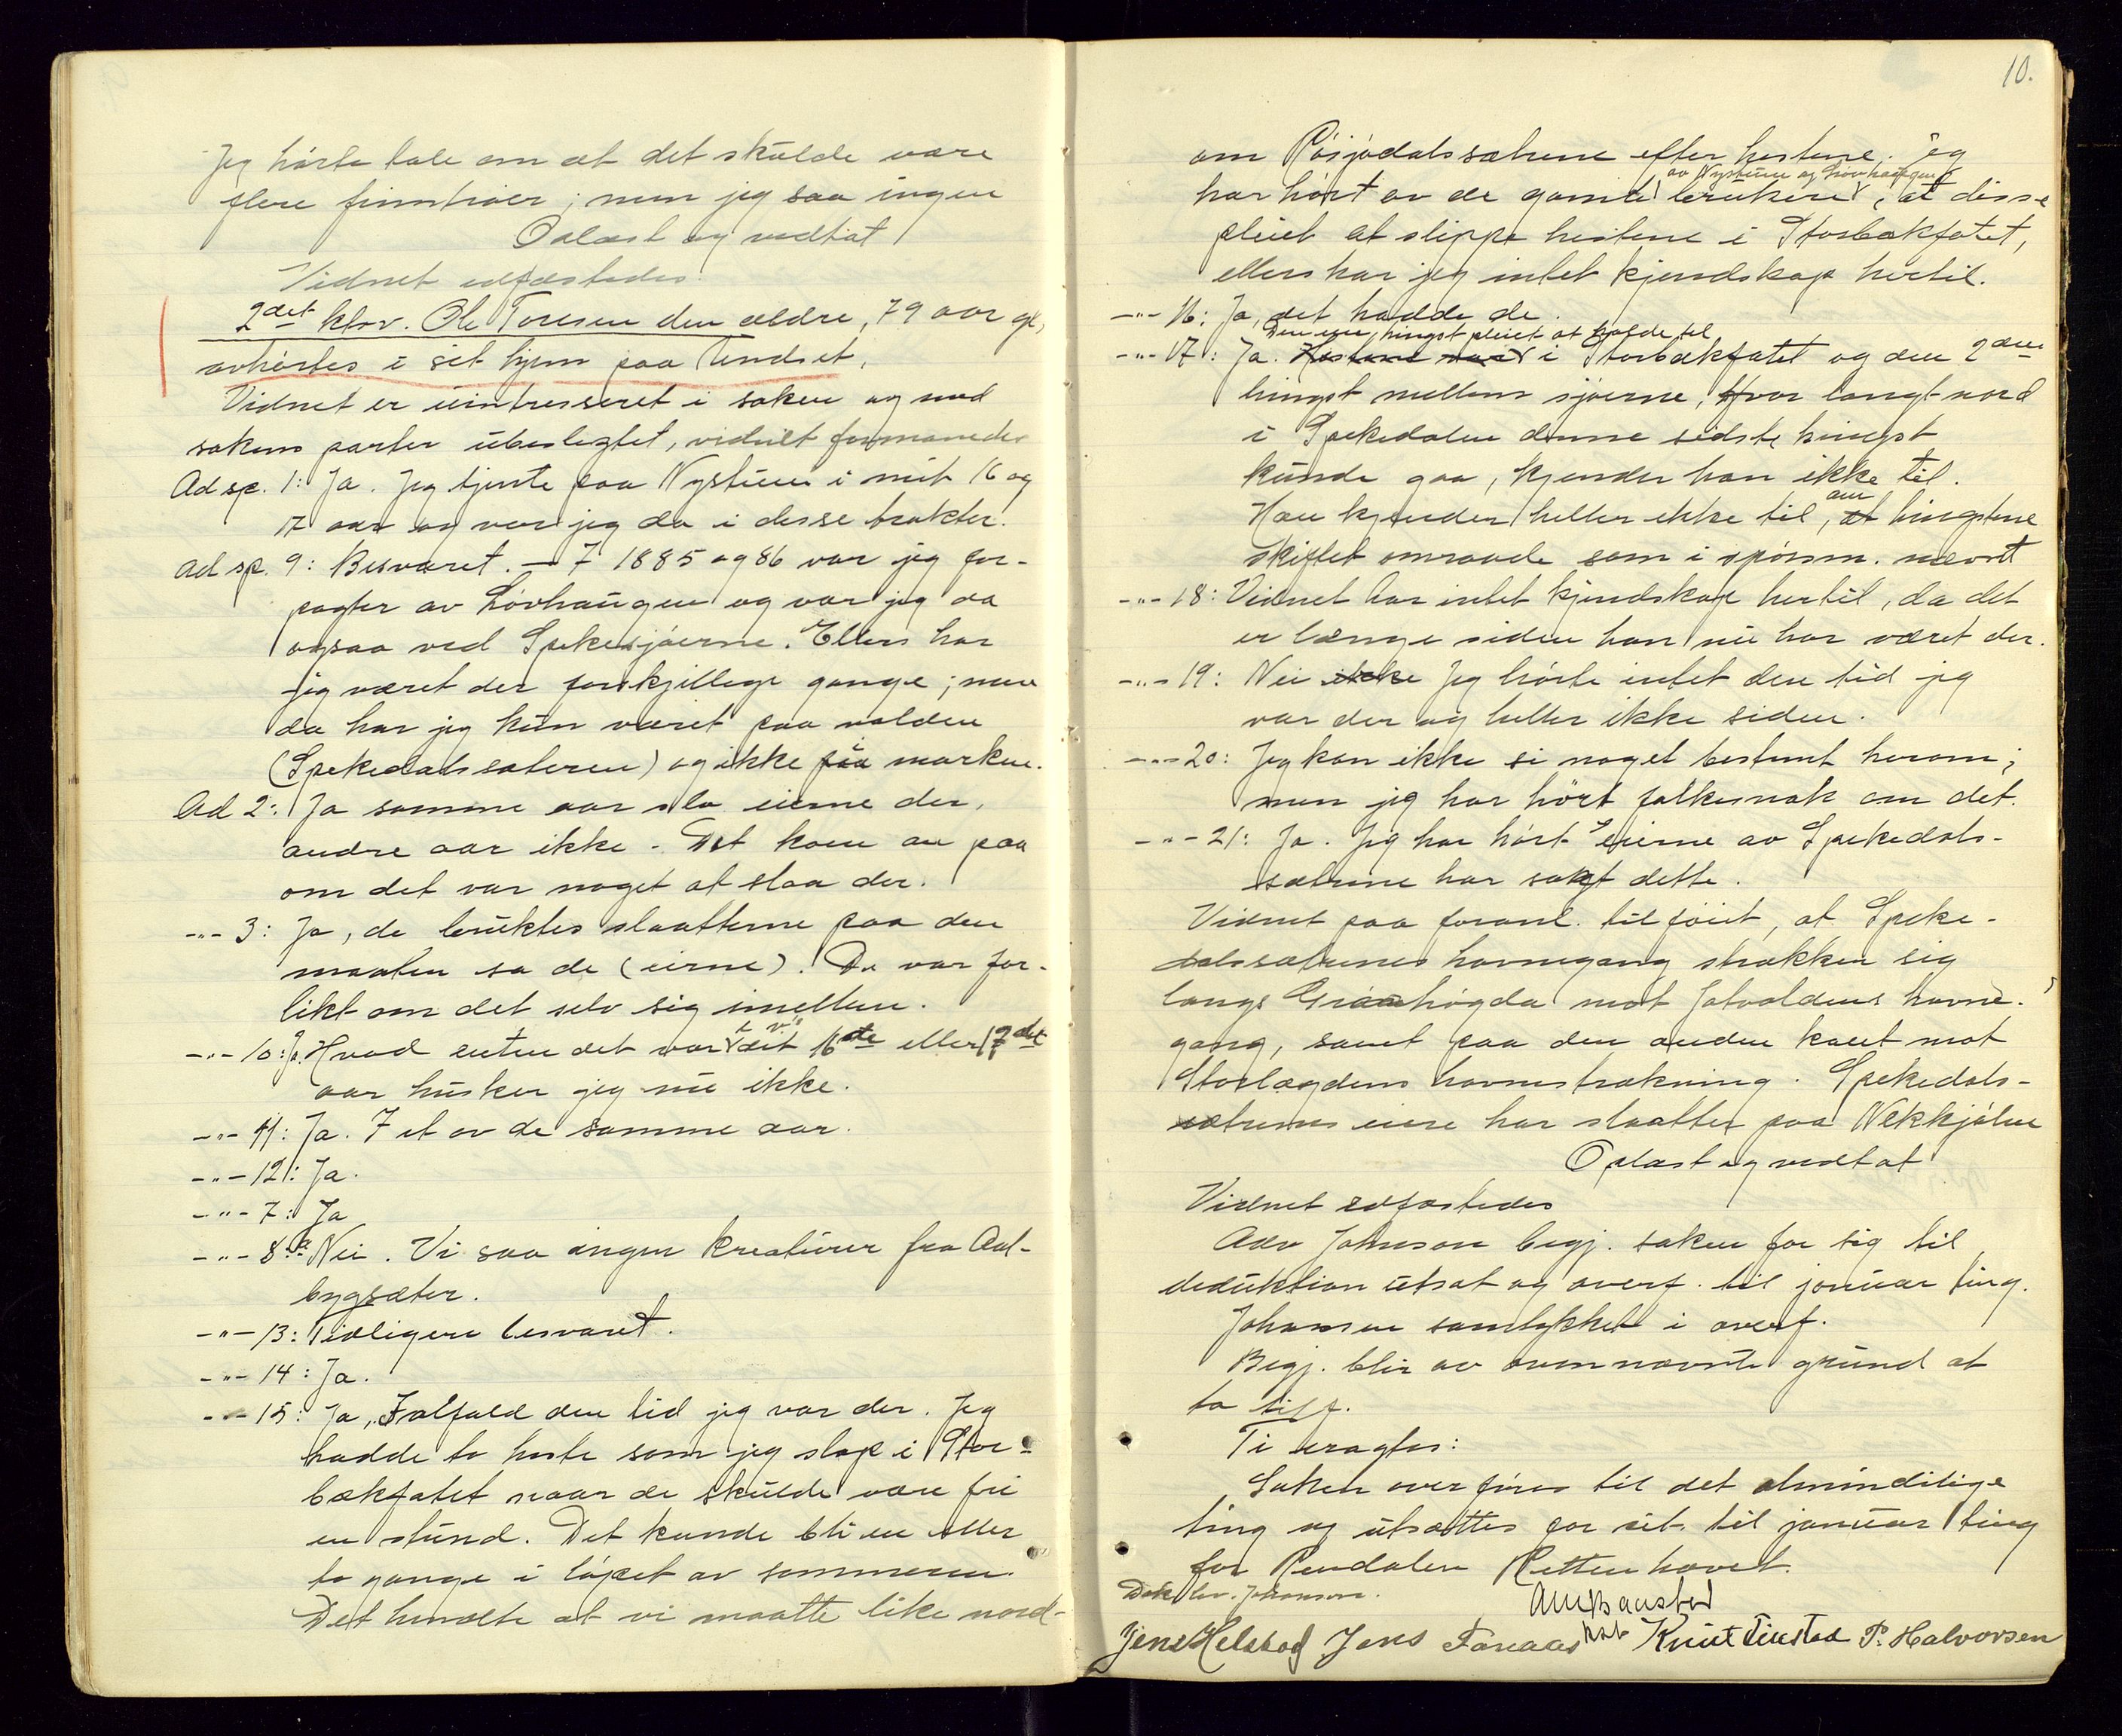 Jeg hørte tale om at det skulde være
flere finntræer; men jeg saa ingen
Oplæst og vedtat
Vidnet edfæstedes.
2det kl. v. Ole Toresen den ældre, 79 aar gl,
avhørtes i sit hjem paa Undset.
Vidnet er uintresseret i saken og med
sakens parter ubeslegtet, vidnet formanedes
Ad sp. 1: Ja. Jeg tjente paa Nystuen i mit 16 og
17 aar og var jeg da i disse trakter.
Ad sp. 9: Besvaret. — I 1885 og 86 var jeg for-
pagter av Løvhaugen og var jeg da
ogsaa ved Spekesjøerne. Ellers har
jeg været der forskjellige gange; men
da har jeg kun været paa volden
(Spekedalssæteren) og ikke i marken.
Ad 2: Ja somme aar slo eierne der,
andre aar ikke. Det kom an paa
om det var noget at slaa der.
-"- 3: Ja, de bruktes slaatterne paa den
maaten sa de (eierne). De var for-
likt om det selv sig imellem.
-"- 10: Ja. Hvad enten det var i mit 16de eller 17det
aar husker jeg nu ikke.
-"- 11: Ja. I et av de samme aar.
-"- 12: Ja.
-"- 7: Ja
-"- 8: Nei. Vi saa ingen kreaturer fra Aal-
bygsæter.
-"- 13: Tidligere besvaret.
-"- 14: Ja.
-"- 15: Ja, Ialfald den tid jeg var der. Jeg
hadde to heste som jeg slap i Stor-
bækfatet naar de skulde være fri
en stund. Det kunde bli en eller
to gange i løpet av sommeren.
Det hendte at vi maatte like nord-
10.
om Røsjødalssætrene efter hestene. Jeg
av Nystuen og Løvhaugen
har hørt av de gamle brukere, at disse
pleiet at slippe hestene i Storbækfatet,
ellers har jeg intet kjendskap hertil.
-"- 16: Ja, det hadde de.
Den ene hingst pleiet at holde til
-"- 17: Ja. Hestene var i Storbækfatet og den 2den
hingst mellem sjøerne, Hvor langt nord
i Spekedalen denne sidste hingst
kunde gaa, kjender han ikke til.
Han kjender heller ikke til, om hingstene
skiftet omraade som i spørsm. nævnt
-"- 18: Vidnet har intet kjendskap hertil, da det
er længe siden han nu har været der.
-"- 19: Nei ikke Jeg hørte intet den tid jeg
var der og heller ikke siden.
-"- 20: Jeg kan ikke si noget bestemt herom;
men jeg har hørt folkesnak om det.
-"- 21: Ja. Jeg har hørt eierne av Spekedals-
sætrene har sagt dette.
Vidnet paa foranl. tilføiet, at Speke-
dalssætrenes havnegang strakken sig
langs Graahøgda mot Jotvoldens havne-
gang, samt paa den anden kant mot
Storlægdens havnestrækning. Spekedals-
sætrenes eiere har slaatter paa Nekkjølen
Oplæst og vedtat
Vidnet edfæstedes
Adv Johnson begj. saken for sig til
deduktion utsat og overf. til januar ting.
Johansen samtykket i overf.
Begj. blir av ovennævnte grund at
ta tilf.
Ti eragtes:
Saken overføres til det almindelige
ting og utsættes for sit. til januar ting
for Rendalen Retten hævet.
Jens Helstad Jens Fanaas Knut Finstad P. Halvorsen